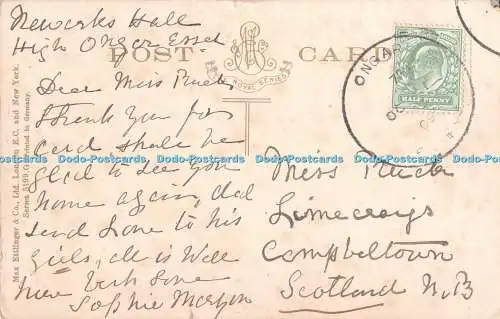 Newarks Hall
High Ongar Essex
POST CARD
ROYAL SERIES
Dear Miss
Thank you for
Card shall be
glad to see you
home again, dad
send love to his
girls, all is well
here with love
Sophie
Miss
Limecraigs
Campbeltown
Scotland N.B
ONGAR
HALF PENNY
Max Ettlinger & Co., Ltd. London E.C. and New York.
Series 5199. Printed in Germany.
Dodo-Postcards Dodo-Postcards Dodo-Postcards Dodo-Postcards Dodo-Postcards